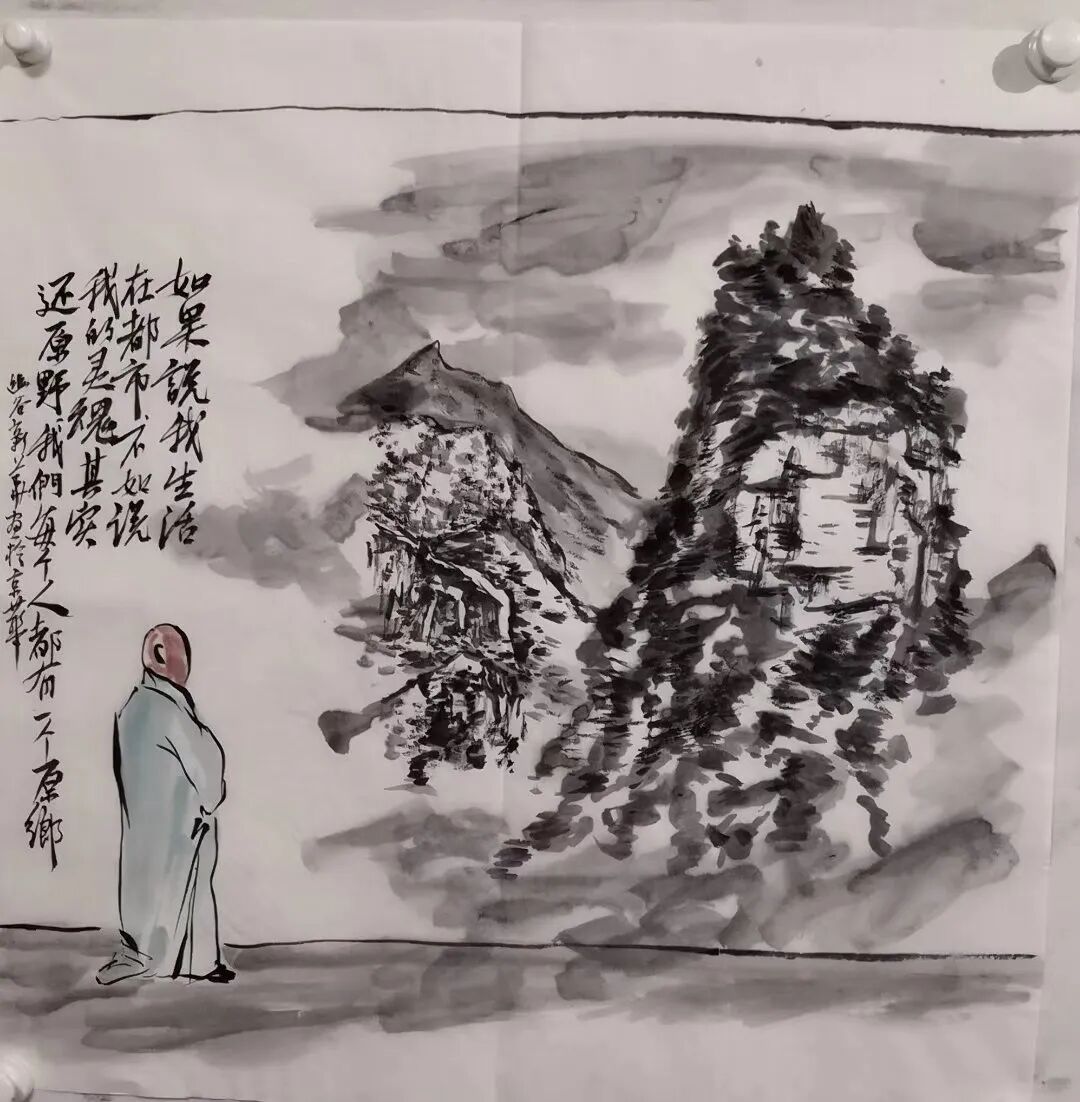 如果說我生活
在都市不如说
我的灵魂其实
还原野我們每个人都有一个原鄉
谷新於京華